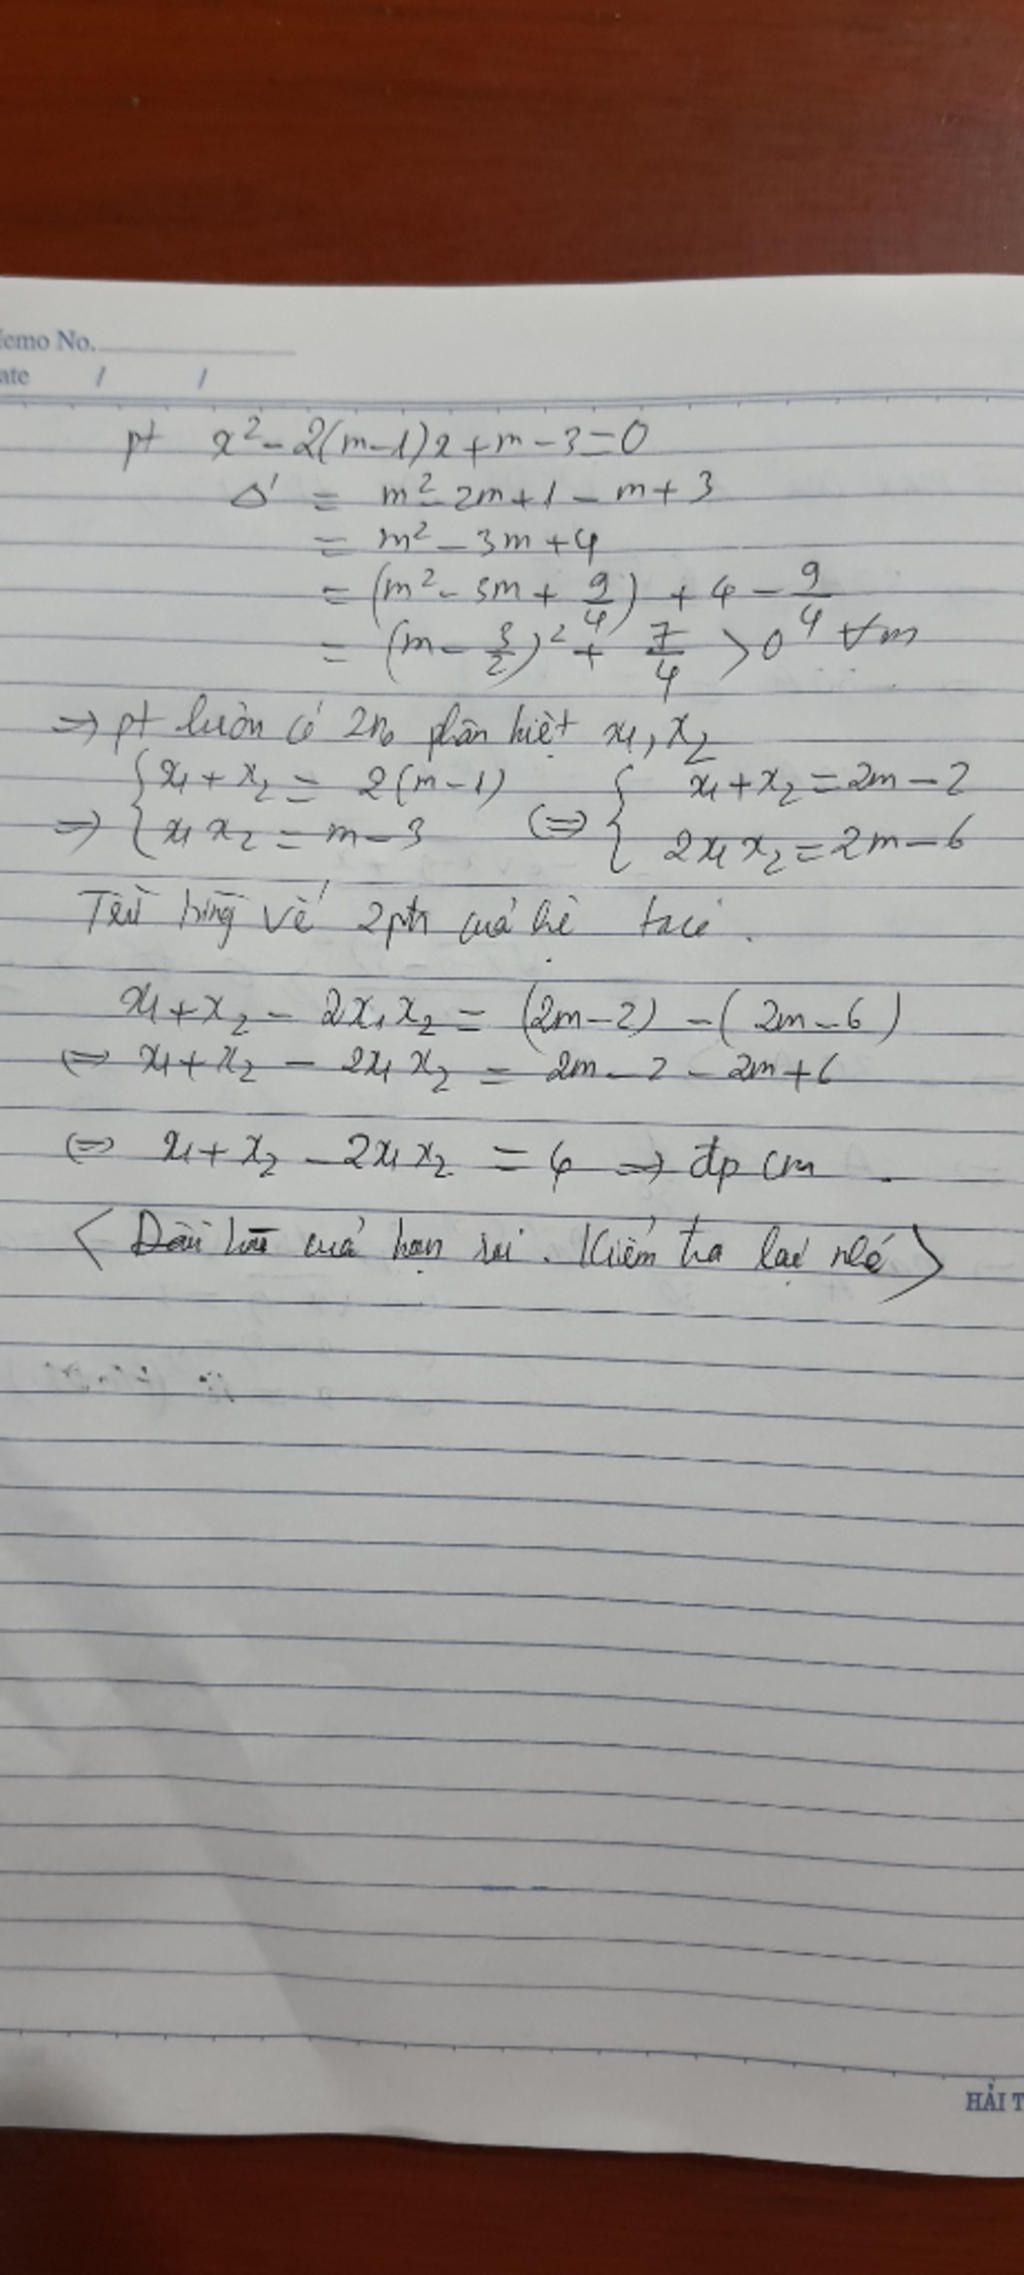 emo No.
ate / /
pt x² - 2(m-1)x + m - 3 = 0
Δ' = m² - 2m + 1 - m + 3
= m² - 3m + 4
= (m² - 3m + 9/4) + 4 - 9/4
= (m - 3/2)² + 7/4 > 0 ∀m
=> pt luôn có 2n₀ phân biệt x₁, x₂
=> { x₁ + x₂ = 2(m-1) ; x₁x₂ = m - 3 (=> { x₁ + x₂ = 2m - 2 ; 2x₁x₂ = 2m - 6
Trừ từng vế 2pt của hệ ta có.
x₁ + x₂ - 2x₁x₂ = (2m - 2) - (2m - 6)
(=> x₁ + x₂ - 2x₁x₂ = 2m - 2 - 2m + 6
(=> x₁ + x₂ - 2x₁x₂ = 4 => đpcm.
< Đầu bài của bạn sai. Kiểm tra lại nhé >
HẢI T